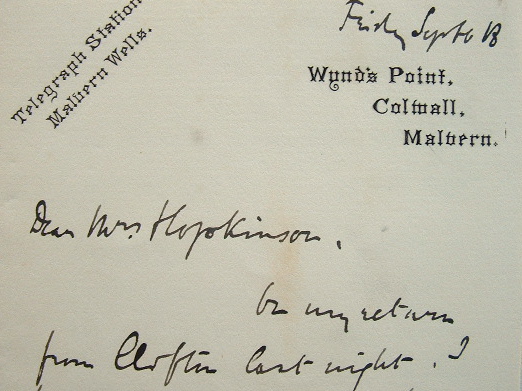 Telegraph Station
Malvern Wells.
Friday Sept 18
Wynd's Point,
Colwall,
Malvern.
Dear Mrs Hopkinson,
On my return
from Clifton last night. I